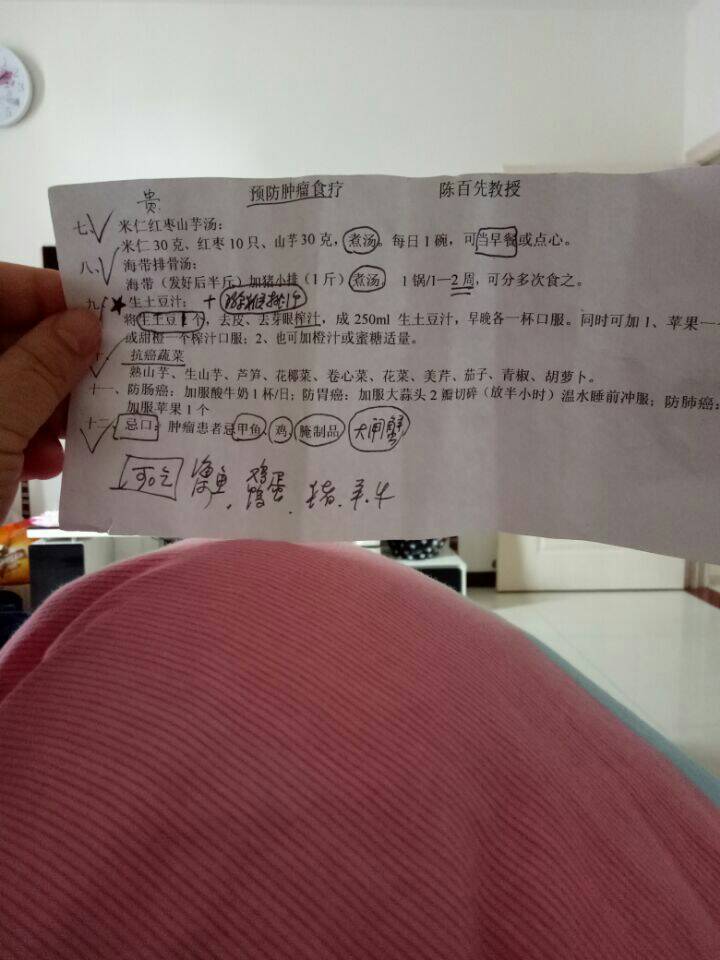 贵
预防肿瘤食疗 陈百先教授
七、米仁红枣山芋汤：
米仁30克、红枣10只、山芋30克，煮汤。每日1碗，可当早餐或点心。
八、海带排骨汤：
海带（发好后半斤）加猪小排（1斤）煮汤， 1锅/1—2周，可分多次食之。
九、生土豆汁： +
将生土豆1个，去皮、去芽眼榨汁，成250ml生土豆汁，早晚各一杯口服。同时可加1、苹果一
或甜橙一个榨汁口服；2、也可加橙汁或蜜糖适量。
十、抗癌蔬菜
熟山芋、生山芋、芦笋、花椰菜、卷心菜、花菜、美芹、茄子、青椒、胡萝卜。
十一、防肠癌：加服酸牛奶1杯/日；防胃癌：加服大蒜头2瓣切碎（放半小时）温水睡前冲服；防肺癌：
加服苹果1个
十二、忌口：肿瘤患者忌甲鱼、鸡、腌制品 大闸蟹
可吃 海鱼、鸡鸭蛋、猪、羊、牛